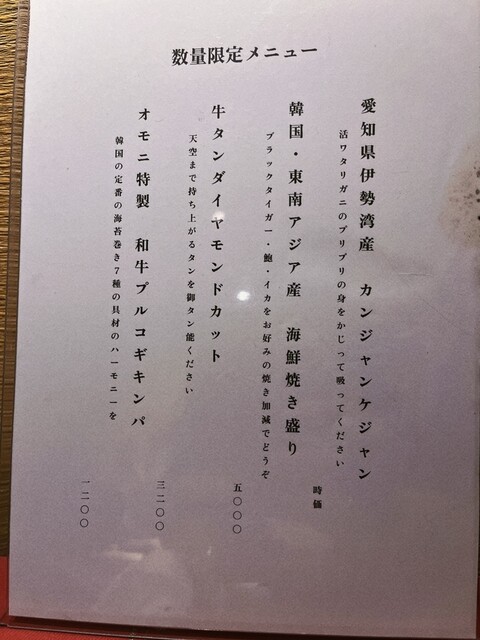 数量限定メニュー
愛知県伊勢湾産　カンジャンケジャン
活ワタリガニのプリプリの身をかじって吸ってください
時価
韓国・東南アジア産　海鮮焼き盛り
ブラックタイガー・鮑・イカをお好みの焼き加減でどうぞ
五〇〇〇
牛タンダイヤモンドカット
天空まで持ち上がるタンを御タン能ください
三二〇〇
オモニ特製　和牛プルコギキンパ
韓国の定番の海苔巻き７種の具材のハーモニーを
一二〇〇